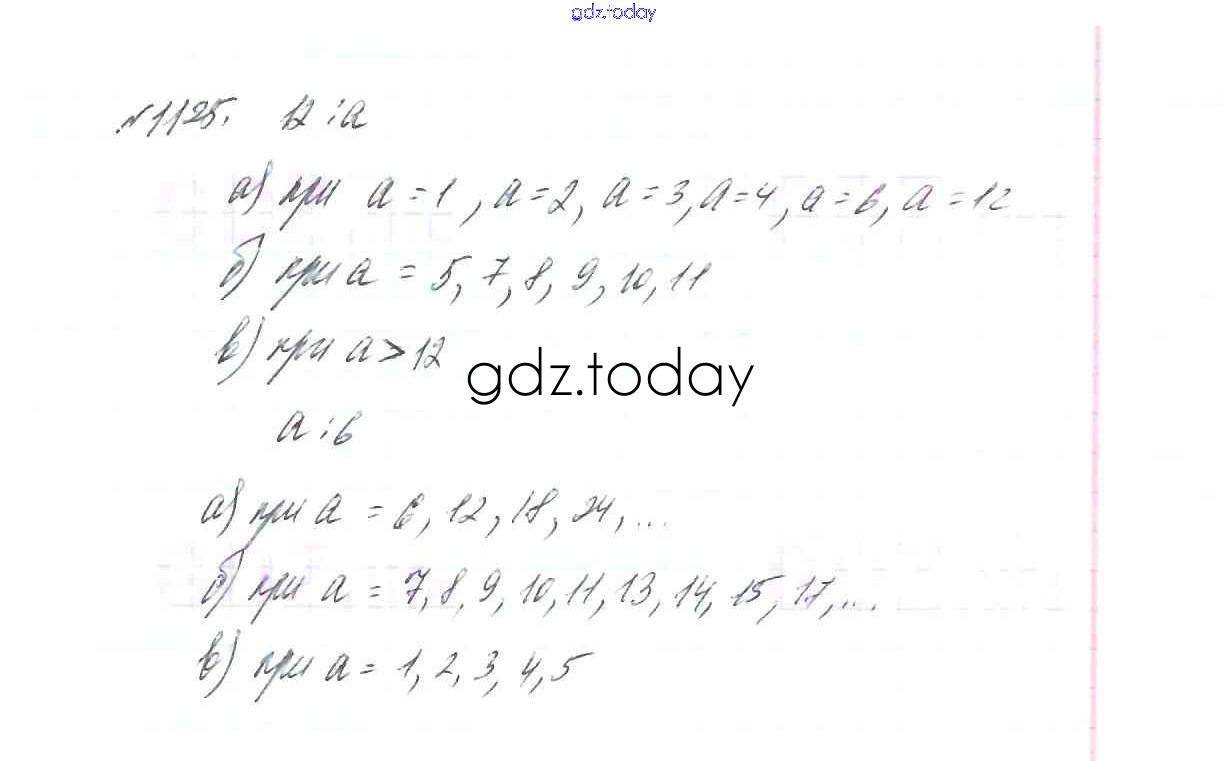 gdz.today
№1125. 12 : a
а) при a = 1, a = 2, a = 3, a = 4, a = 6, a = 12
б) при a = 5, 7, 8, 9, 10, 11
в) при a > 12
gdz.today
a : 6
а) при a = 6, 12, 18, 24, ...
б) при a = 7, 8, 9, 10, 11, 13, 14, 15, 17, ...
в) при a = 1, 2, 3, 4, 5